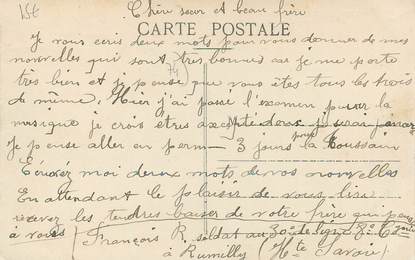 15€
Chère sœur et beau frère
CARTE POSTALE
Je vous ecris deux mots pour vous donner de mes
nouvelles qui sont très bonnes car je me porte
très bien et je pense que vous êtes tous les trois
de même. Hier j'ai passé l'examen pour la
musique je crois êtres
je pense aller en perm 3 jours pour la Toussain
moi deux mots de vos nouvelles
En attendant le plaisir de vous lire
recevez les tendres baiser de votre frère qui pense
à vous François R. soldat au 30e de ligne 8e Cie
à Rumilly (Hte Savoie)